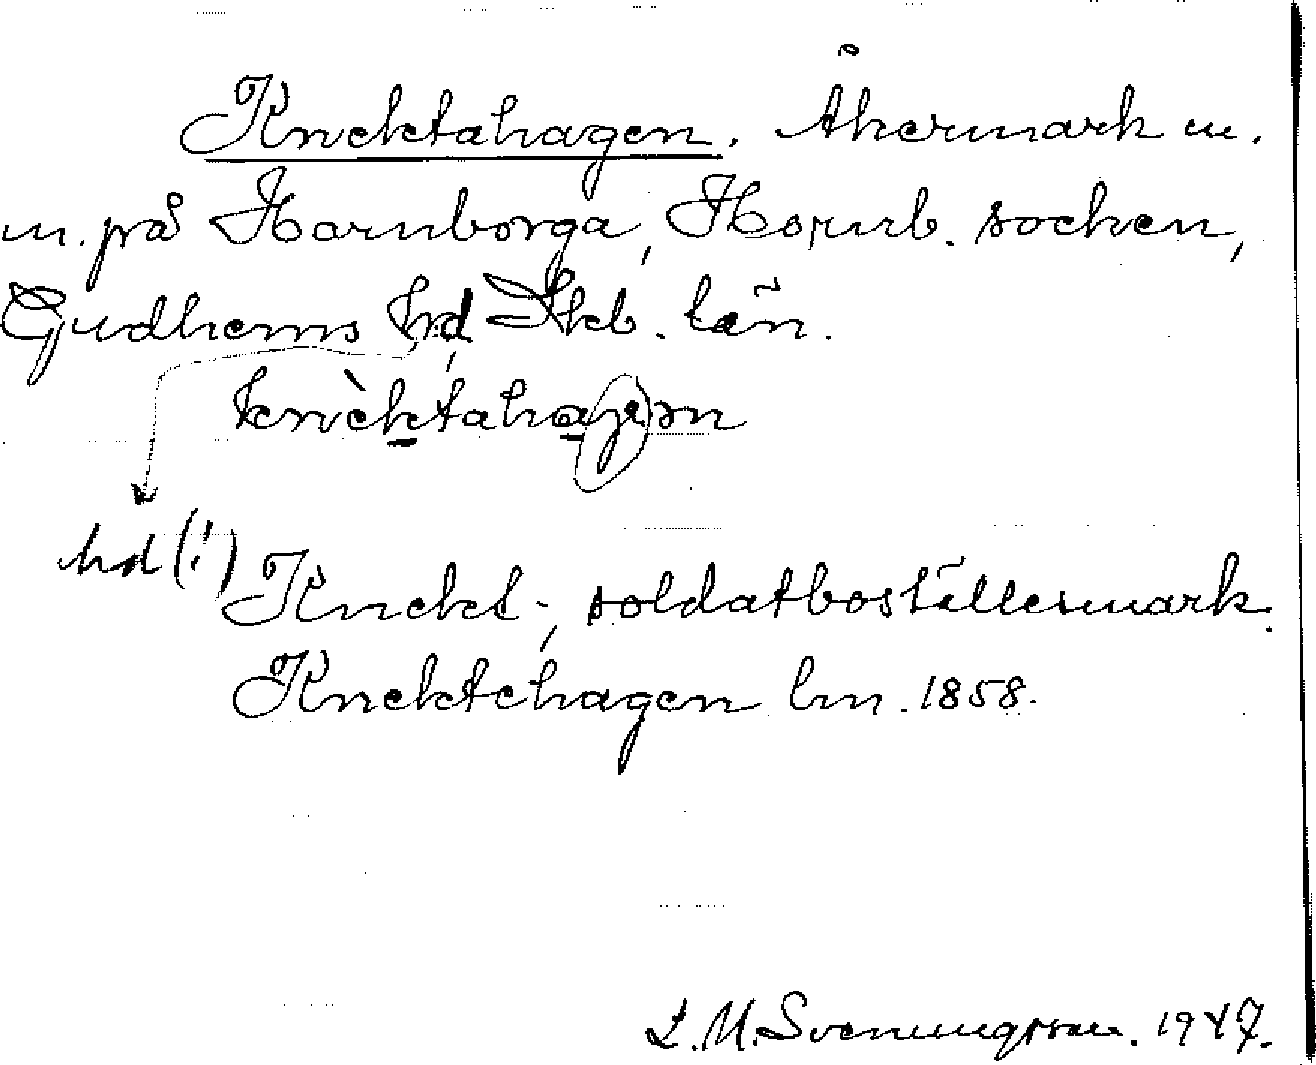 Knektahagen. Åkermark m.
m. på Hornborga, Hornb. socken,
Gudhems hd, Skb. län.
knèktahagən
hd (!)
Knekt-, soldatboställesmark.
Knektehagen lm. 1858.
L. M. Svenungsson. 1947.